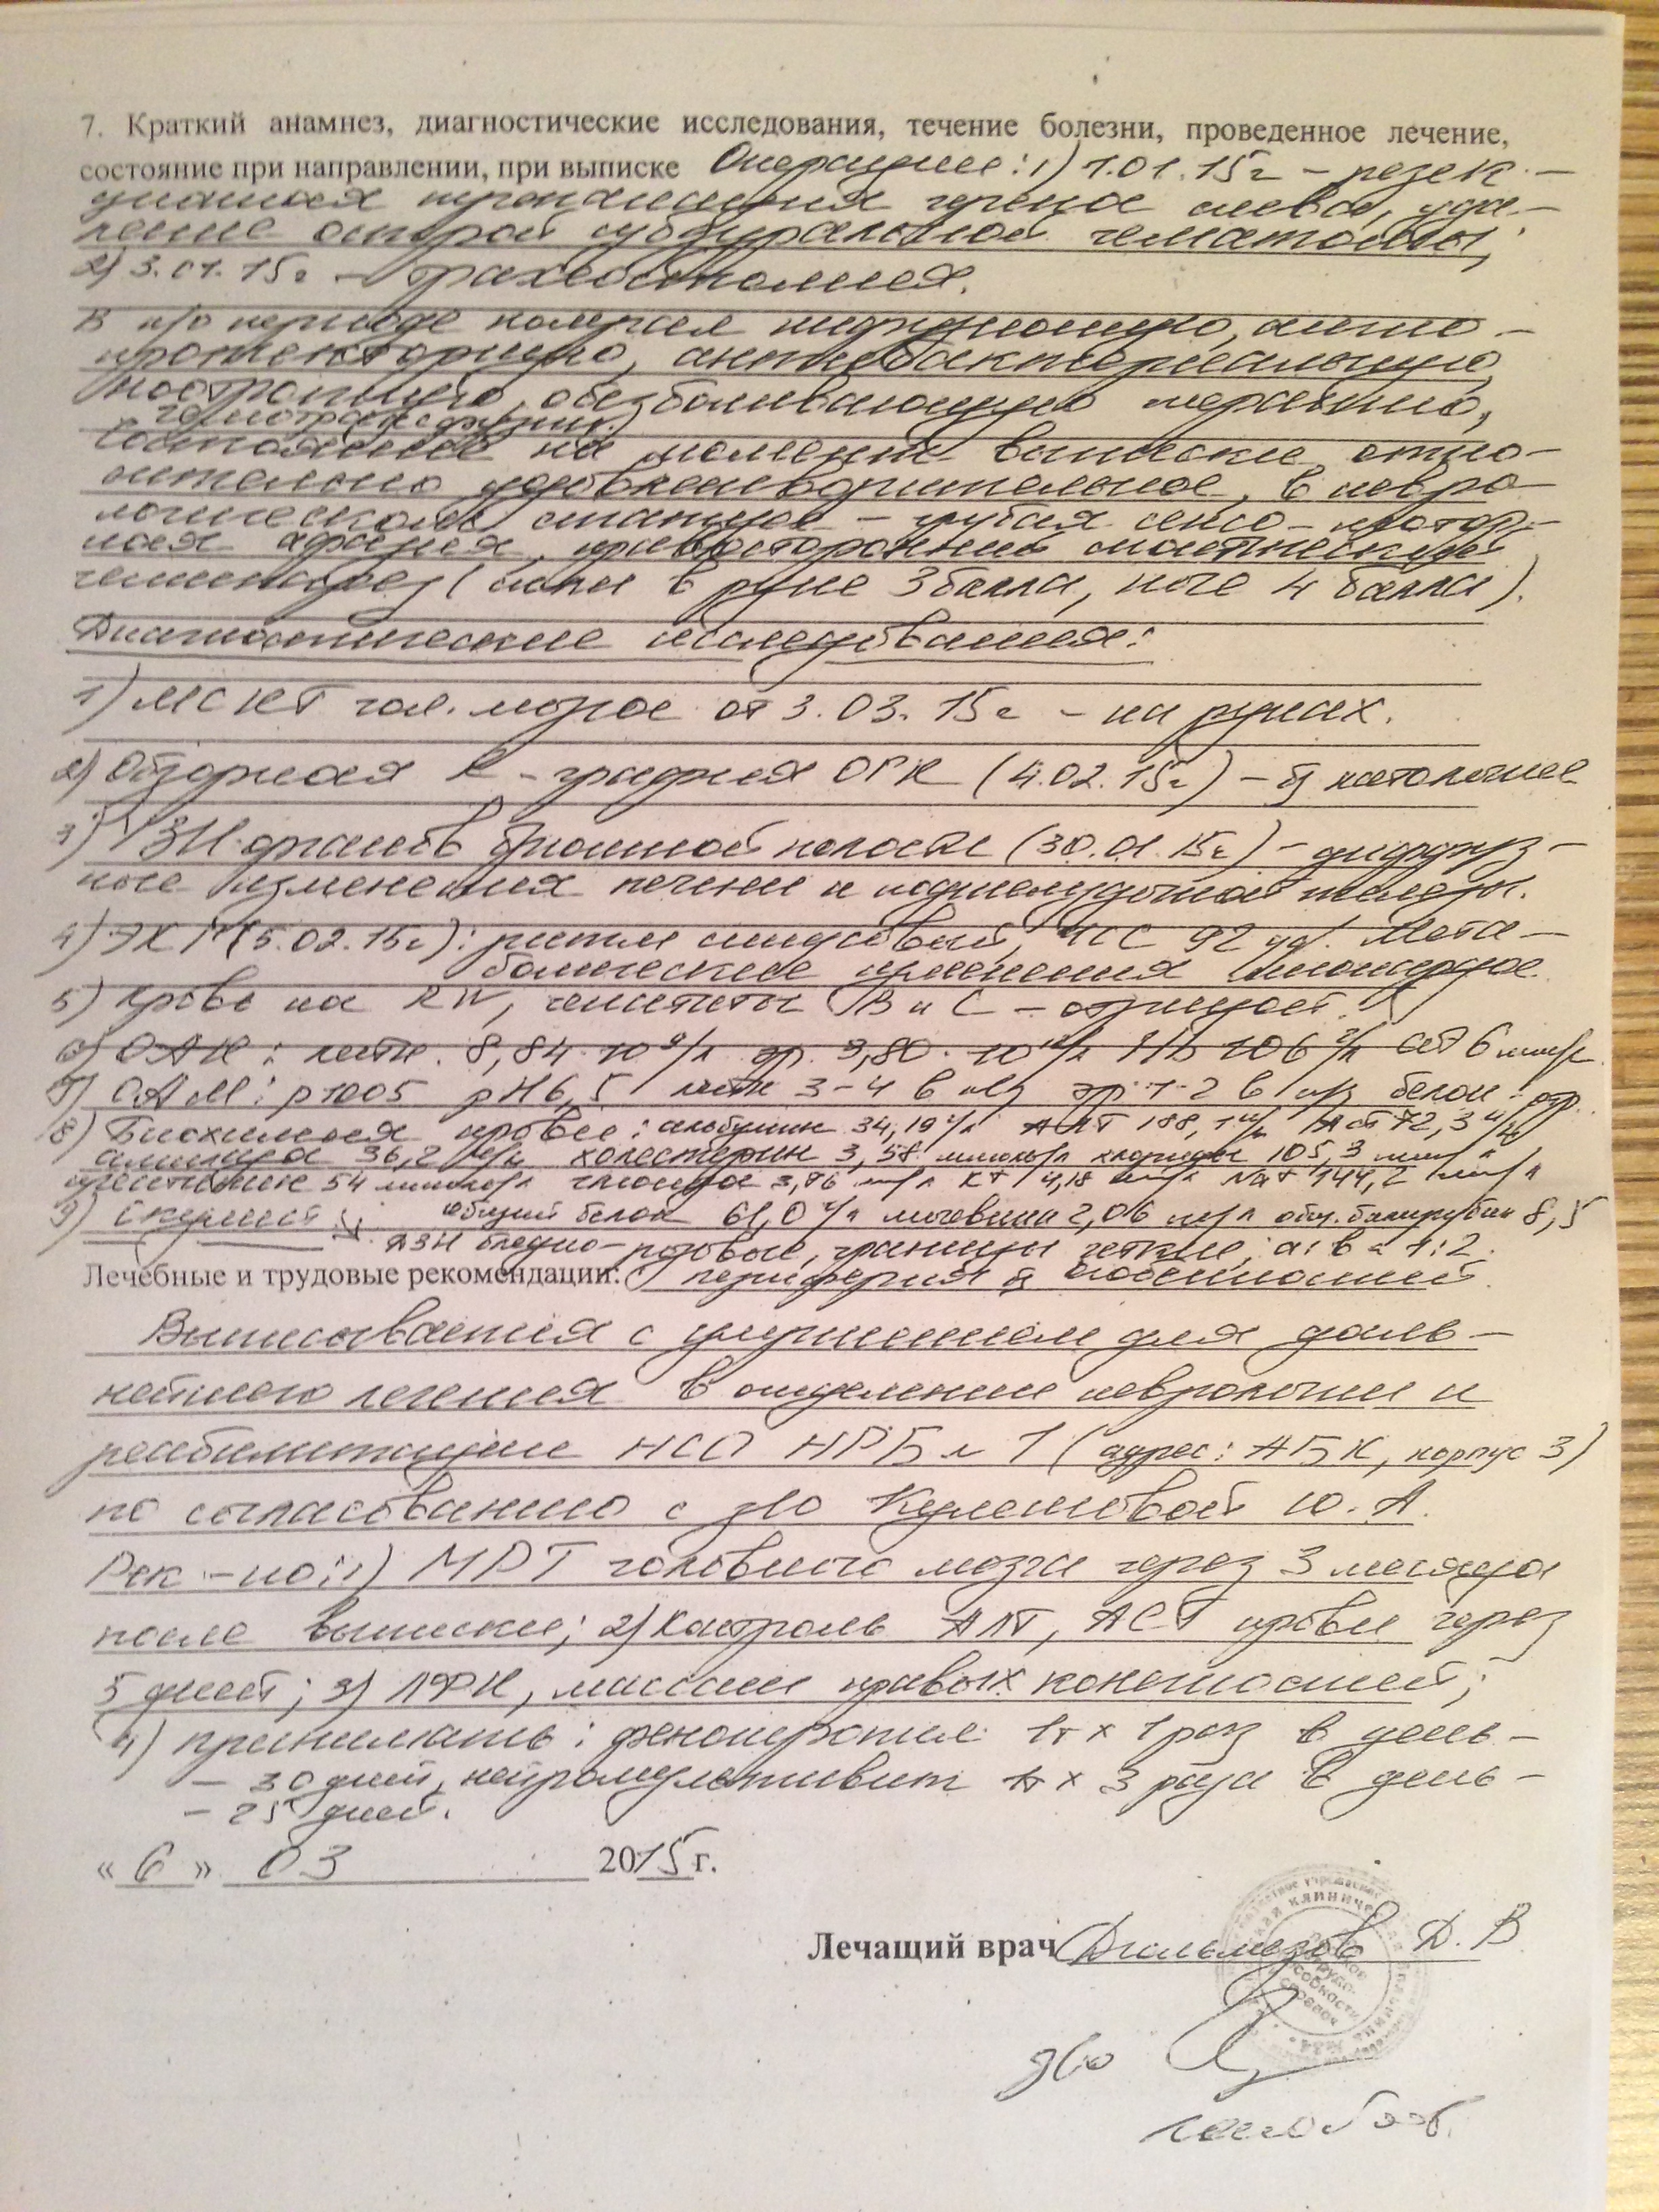 7. Краткий анамнез, диагностические исследования, течение болезни, проведенное лечение,
состояние при направлении, при выписке Операции: 1) 1.01.15г – резек-
ционная трепанация черепа слева, уда-
ление острой субдуральной гематомы;
2) 3.01.15г – трахеостомия.
В п/о периоде получал инфузионную,
антибактериальную,
ноотропную, обезболивающую терапию,
гемотрансфузии.
Состояние на момент выписки отно-
сительно удовлетворительное, в невро-
логическом статусе – грубая сенсо-мотор-
ная афазия, правосторонний спастический
гемипарез (сила в руке 3 балла, ноге 4 балла).
Диагностические исследования:
1) МСКТ гол. мозга от 3.03.15г – на руках.
2) Обзорная R-графия ОГК (4.02.15г) – б/ патологии
3) УЗИ органов брюшной полости (30.01.15г) – диффуз-
ные изменения печени и поджелудочной железы.
4) ЭКГ (5.02.15г): ритм синусовый, ЧСС 92 уд/. Мета-
болические изменения миокарда.
5) Кровь на RW, гепатиты В и С – отрицат.
6) ОАК: лейк. 8,84·10⁹/л эр. 3,80·10¹²/л Hb 106 г/л
7) ОАМ: р 1005 pH 6,5 лейк 3-4 в п/з эр 1-2 в п/з белок: отр.
8) Биохимия крови: альбумин 34,19 г/л АЛТ 188,1 АсТ 72,3
амилаза 36,2 холестерин 3,58 ммоль/л хлориды 105,3
креатинин 54 глюкоза 3,76 К+ 4,18 Na+ 144,2
общий белок 61,0 г/л мочевина 2,06 общ. билирубин 8,5
9) Окулист: ДЗН бледно-розовые, границы четкие, а:в = 1:2.
Лечебные и трудовые рекомендации: периферия б/ особенностей.
Выписывается с улучшением для даль-
нейшего лечения в отделение неврологии и
реабилитации НРБ № 1 (адрес: АБК, корпус 3)
по согласованию с з/о Кулешовой Ю.А.
Рек-но: 1) МРТ головного мозга через 3 месяца
после выписки; 2) Контроль АЛТ, АСТ крови через
5 дней; 3) ЛФК, массаж правых конечностей;
4) принимать: фенотропил 1т х 1 раз в день –
– 30 дней, нейромультивит 1т х 3 раза в день –
– 25 дней.
« 6 » 03 2015 г.
Лечащий врач Д.В
з/о